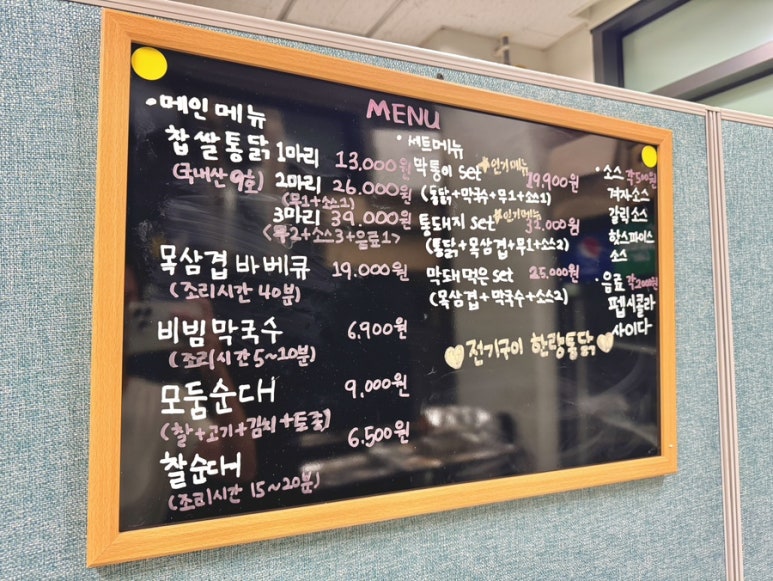 MENU
• 메인 메뉴
찹쌀통닭 1마리 13,000원
(국내산 9호) 2마리 26,000원
(무1+소스2)
3마리 39,000원
<무2+소스3+음료1>
목삼겹 바베큐 19,000원
(조리시간 40분)
비빔막국수 6,900원
(조리시간 5~10분)
모둠순대 9,000원
(찰+고기+김치+토종)
찰순대 6,500원
(조리시간 15~20분)
• 세트메뉴
막통이 set 인기메뉴 19,900원
(통닭+막국수+무1+소스2)
통돼지 set 인기메뉴 32,000원
(통닭+목삼겹+무1+소스2)
막돼먹은 set 25,000원
(목삼겹+막국수+소스2)
전기구이 한량통닭
• 소스 각500원
겨자소스
갈릭소스
핫스파이스
소스
• 음료 각2000원
펩시콜라
사이다